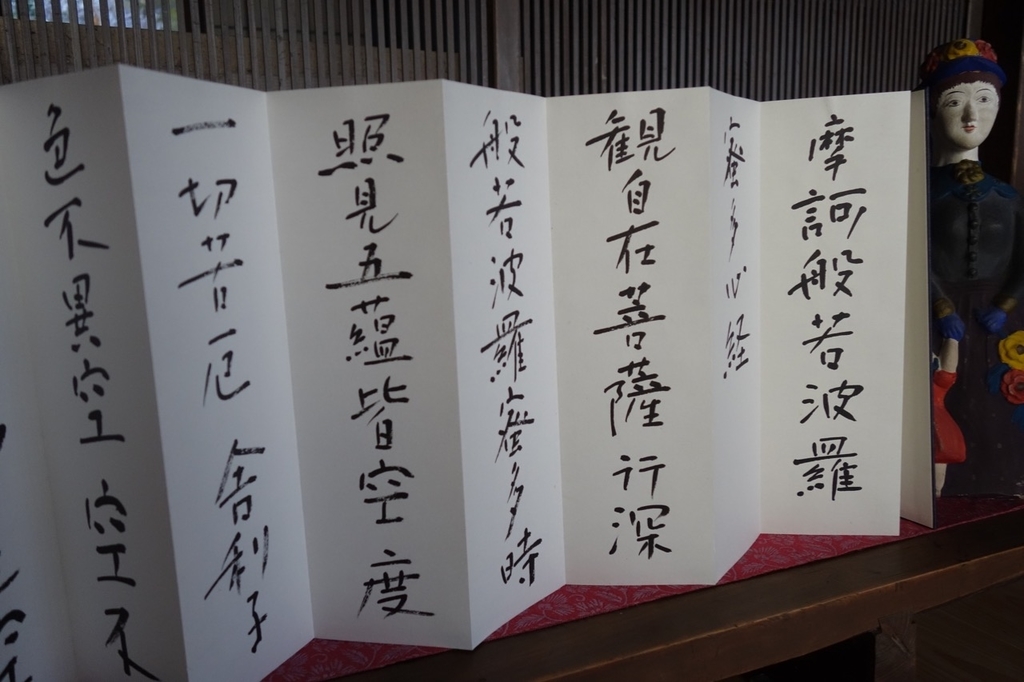 摩訶般若波羅
蜜多心経
観自在菩薩行深
般若波羅蜜多時
照見五蘊皆空度
一切苦厄舎利子
色不異空空不